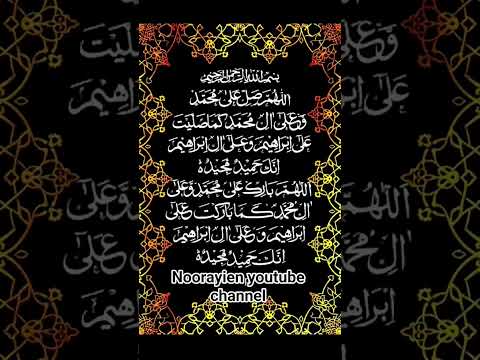 بسم الله الرحمن الرحيم
اللهم صل على محمد
وعلى ال محمد كما صليت
على ابراهيم وعلى ال ابراهيم
انك حميد مجيد
اللهم بارك على محمد وعلى
ال محمد كما باركت على
ابراهيم وعلى ال ابراهيم
انك حميد مجيد
Noorayien youtube
channel